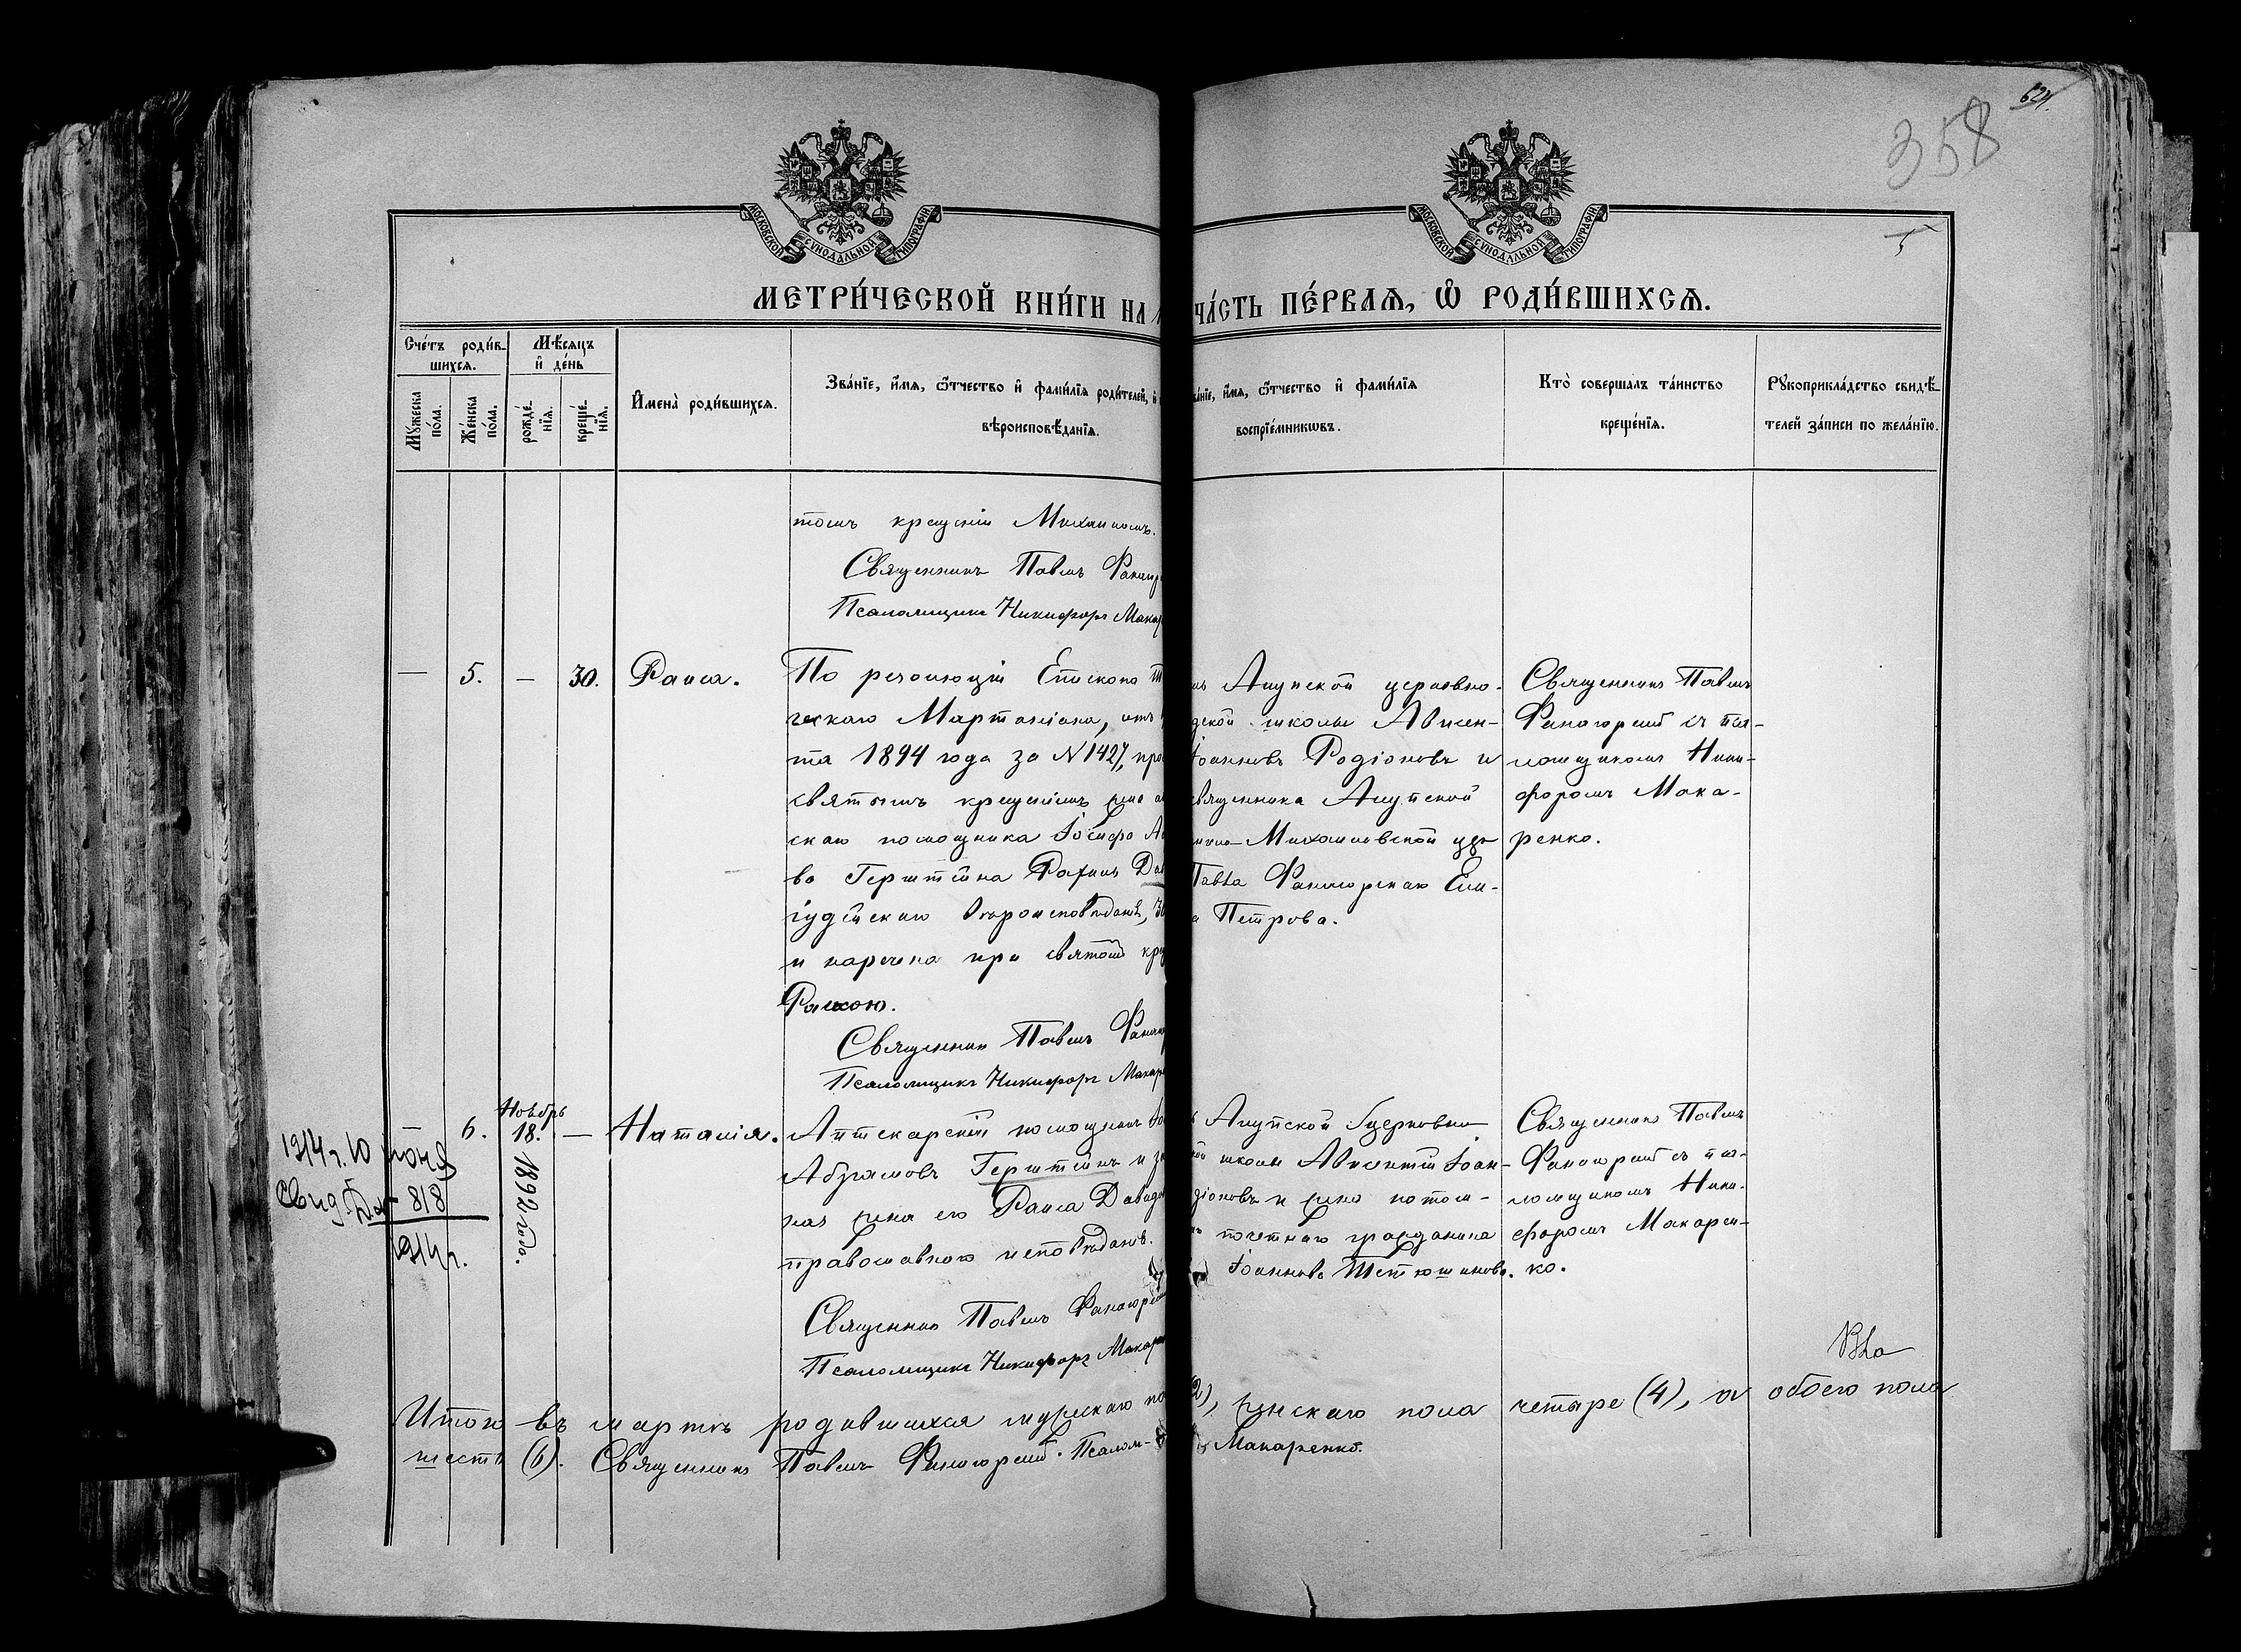 624.
358
5
МОСКОВСКОЙ СѴНОДАЛЬНОЙ ТИПОГРАФІИ
МОСКОВСКОЙ СѴНОДАЛЬНОЙ ТИПОГРАФІИ
МЕТРИ́ЧЕСКОЙ КНИ́ГИ НА
ЧА́СТЬ ПЕ́РВАѦ, Ѽ РОДИ́ВШИХСѦ.
Сче́тъ роди́в-
шихсѧ.
Мꙋ́жеска по́ла.
Же́нска по́ла.
Мѣ́сѧцъ
и҆ де́нь
рожде́-
нїѧ.
креще́-
нїѧ.
И҆мена̀ роди́вшихсѧ.
Зва́нїе, и҆́мѧ, ѻ҆́тчество и҆ фами́лїѧ роди́телей, и҆
вѣроисповѣ́данїѧ.
ва́нїе, и҆́мѧ, ѻ҆́тчество и҆ фами́лїѧ
воспрїе́мникѡвъ.
Кто̀ соверша́лъ та́инство
креще́нїѧ.
Рꙋкоприкла́дство свидѣ́-
телей за́писи по жела́нїю.
томъ крещеніи Михаиломъ.
Священникъ Павелъ Фанагор
Псаломщикъ Никифоръ Макар
— 5. — 30. Раиса.
По резолюціи Епископа Т
ческаго Мартиніана, отъ
та 1894 года за N 1427, про
святымъ крещеніемъ жена ап
скаго помощника Іосифа Аб
ва Герштейна Рахиль Дав
іудейскаго вѣроисповѣданія,
и наречена при святомъ кре
Раисою.
Священникъ Павелъ Фанаг
Псаломщикъ Никифоръ Макар
ль Алупской церковно-
дской школы Авксен-
Іоанновъ Родіоновъ и
священника Алупской
Михаиловской цер
Павла Фанагорскаго Ели-
а Петрова.
Священникъ Павелъ
Фанагорскій съ пса-
ломщикомъ Ники-
форомъ Мака-
ренко.
— 6. Ноябрь 18. — Наталія.
1892 года.
1914 г. 10 іюня
Свид. 818
1914 г.
Аптекарскій помощникъ Іо
Абрамовъ Герштейнъ и за
ная жена его Раиса Давидо
православнаго исповѣданія.
Священникъ Павелъ Фанагорскі
Псаломщикъ Никифоръ Макар
ь Алупской Церковно
ой школы Авксентій Іоан-
діоновъ и жена потом-
почетнаго гражданина
Іоаннова Тетюшинова.
Священникъ Павелъ
Фанагорскій съ пса-
ломщикомъ Ники-
форомъ Макарен-
ко.
Итого въ мартѣ родившихся мужескаго по 2), женскаго пола четыре (4), а обоего пола
шесть (6). Священникъ Павелъ Фанагорскій. Псалом- Макаренко.